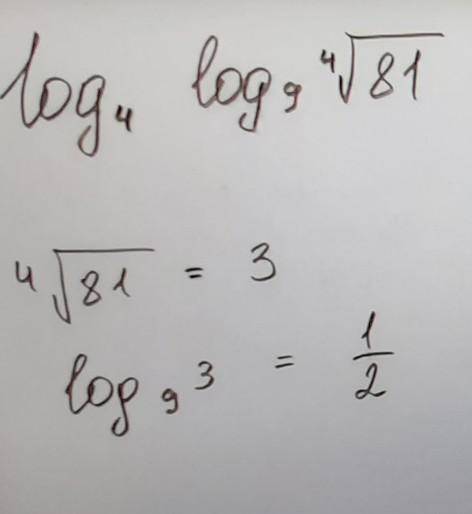 log₄ log₉ ⁴√81
⁴√81 = 3
log₉ 3 = 1/2